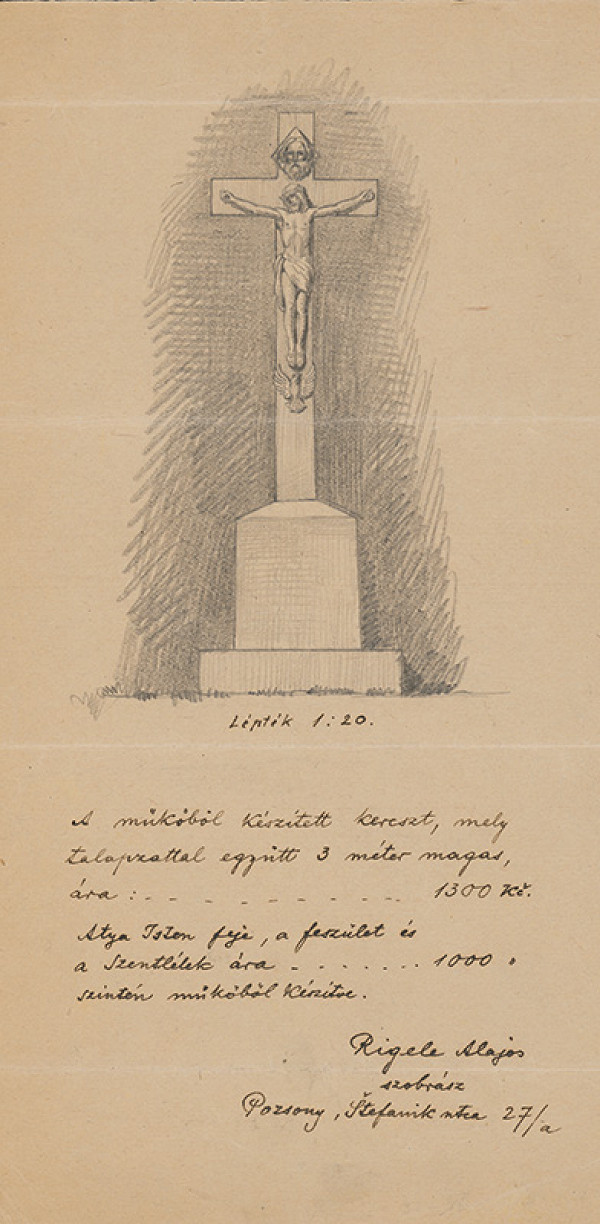 Lépték 1:20.
A műkőből készített kereszt, mely
talapzattal együtt 3 méter magas,
ára : - - - - - - - - - 1300 Kč.
Atya Isten feje, a feszület és
a Szentlélek ára - . - . . . . 1000 "
szintén műkőből készítve.
Rigele Alajos
szobrász
Pozsony, Štefanik utca 27/a